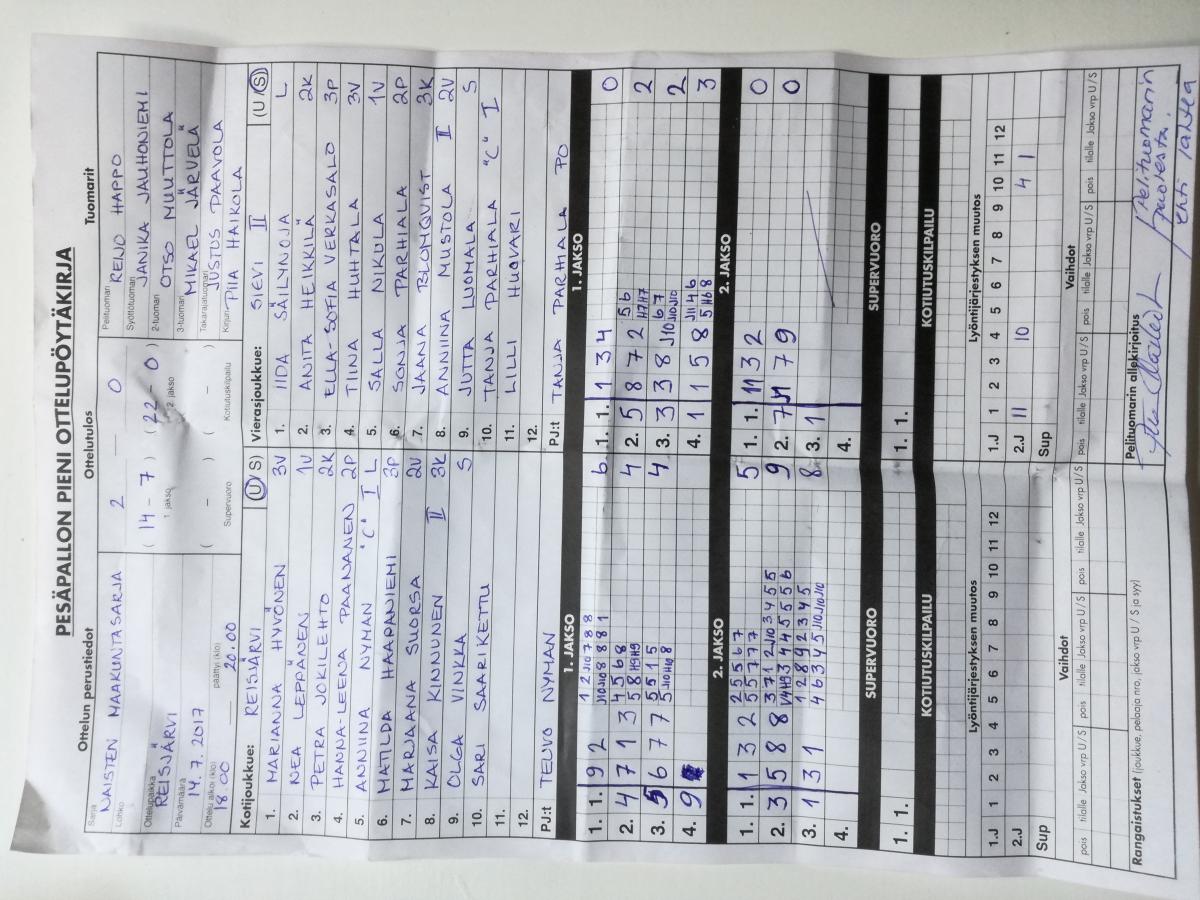 PESÄPALLON PIENI OTTELUPÖYTÄKIRJA
Ottelun perustiedot
Sarja
NAISTEN MAAKUNTASARJA
Lohko
Ottelupaikka
REISJÄRVI
Päivämäärä
14.7.2017
Ottelu alkoi (klo)
18.00
päättyi (klo)
20.00
Ottelutulos
2 — 0
( 14 - 7 ) ( 22 - 0 )
1. jakso 2. jakso
( - ) ( - )
Supervuoro Kotiutuskilpailu
Tuomarit
Pelituomari
REIJO HAPPO
Syöttötuomari
JANIKA JAUHONIEMI
2-tuomari
OTSO MUUTTOLA
3-tuomari
MIKAEL JÄRVELÄ
Takarajatuomari
JUSTUS PAAVOLA
Kirjuri
PIIA HAIKOLA
Kotijoukkue: REISJÄRVI (U S)
1. MARIANNA HYVÖNEN 3V
2. NEA LEPPÄNEN 1V
3. PETRA JOKILEHTO 2K
4. HANNA-LEENA PAANANEN 2P
5. ANNIINA NYMAN "C" I L
6. MATILDA HAAPANIEMI 3P
7. MARJAANA SUORSA 2V
8. KAISA KINNUNEN II 3K
9. OLGA VINKKA S
10. SARI SAARIKETTU
11.
12.
PJ:t TEUVO NYMAN
Vierasjoukkue: SIEVI II (U S)
1. IIDA SÄILYNOJA L
2. ANITA HEIKKILÄ 2K
3. ELLA-SOFIA VERKASALO 3P
4. TIINA HUHTALA 3V
5. SALLA NIKULA 1V
6. SONJA PARHIALA 2P
7. JAANA BLOMQVIST 3K
8. ANNIINA MUSTOLA II 2V
9. JUTTA LUOMALA S
10. TANJA PARHIALA "C" I
11. LILLI HUOVARI
12.
PJ:t TANJA PARHIALA PO
1. JAKSO
1. 1. 9 2 1 2 J10 7 8 8 6
J10 J10 8 8 8 1
2. 4 7 1 3 4 5 6 8 4
5 8 H9 H9
3. 5 6 7 7 5 5 1 5 4
5 J10 H10 8
4. 9
2. JAKSO
1. 1. 1 3 2 2 5 5 6 7 5
5 5 7 7 7
2. 3 5 8 8 3 7 1 2 J10 3 4 5 5 9
V4 H9 3 4 4 5 5 5 6
3. 1 3 1 1 2 8 9 2 3 4 5 8
4 6 3 4 5 J10 J10 J10
4.
SUPERVUORO
1. 1.
KOTIUTUSKILPAILU
Lyöntijärjestyksen muutos
1.J 1 2 3 4 5 6 7 8 9 10 11 12
2.J
Sup
Vaihdot
pois tilalle Jakso vrp U/S pois tilalle Jakso vrp U/S
1. JAKSO
1. 1. 1 3 4 0
2. 5 8 7 2 5 6 2
H7 H7
3. 3 3 8 J10 6 7 2
J10 J10
4. 1 1 5 8 J11 4 6 3
5 H6 8
2. JAKSO
1. 1. 11 3 2 0
2. 7 J11 7 9 0
3. 1
4.
SUPERVUORO
1. 1.
KOTIUTUSKILPAILU
Lyöntijärjestyksen muutos
1.J 1 2 3 4 5 6 7 8 9 10 11 12
2.J 11 10 4 1
Sup
Vaihdot
pois tilalle Jakso vrp U/S pois tilalle Jakso vrp U/S pois tilalle Jakso vrp U/S
Rangaistukset (joukkue, pelaaja nro, jakso vrp U / S ja syy)
Pelituomarin allekirjoitus
pelituomarin
puolesta,
ehti lähteä